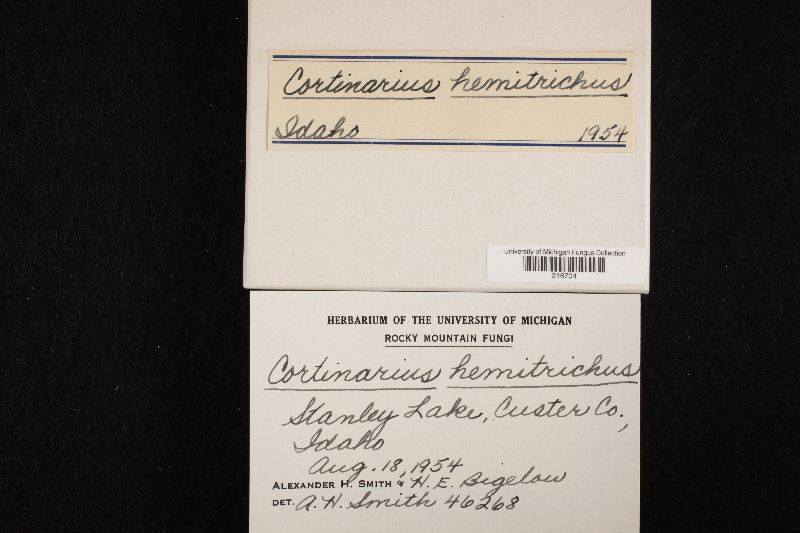 Cortinarius hemitrichus
Idaho 1954
University of Michigan Fungus Collection
216704
HERBARIUM OF THE UNIVERSITY OF MICHIGAN
ROCKY MOUNTAIN FUNGI
Cortinarius hemitrichus
Stanley Lake, Custer Co.,
Idaho
Aug. 18, 1954
ALEXANDER H. SMITH & H. E. Bigelow
DET. A. H. Smith 46268